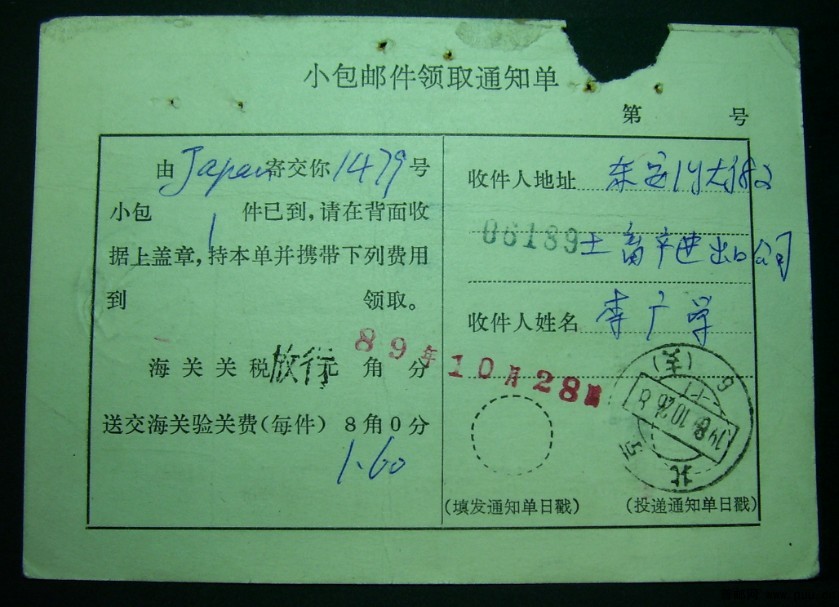 小包邮件领取通知单
第 号
由 Japan 寄交你 1479 号
小包 1 件已到,请在背面收
据上盖章,持本单并携带下列费用
到 领取。
海关关税 放行 元 角 分
送交海关验关费(每件) 8角0分
1.60
收件人地址 东
06189 土畜产进出口公司
收件人姓名 李广学
89年10月28
北
(关)
(填发通知单日戳)
(投递通知单日戳)